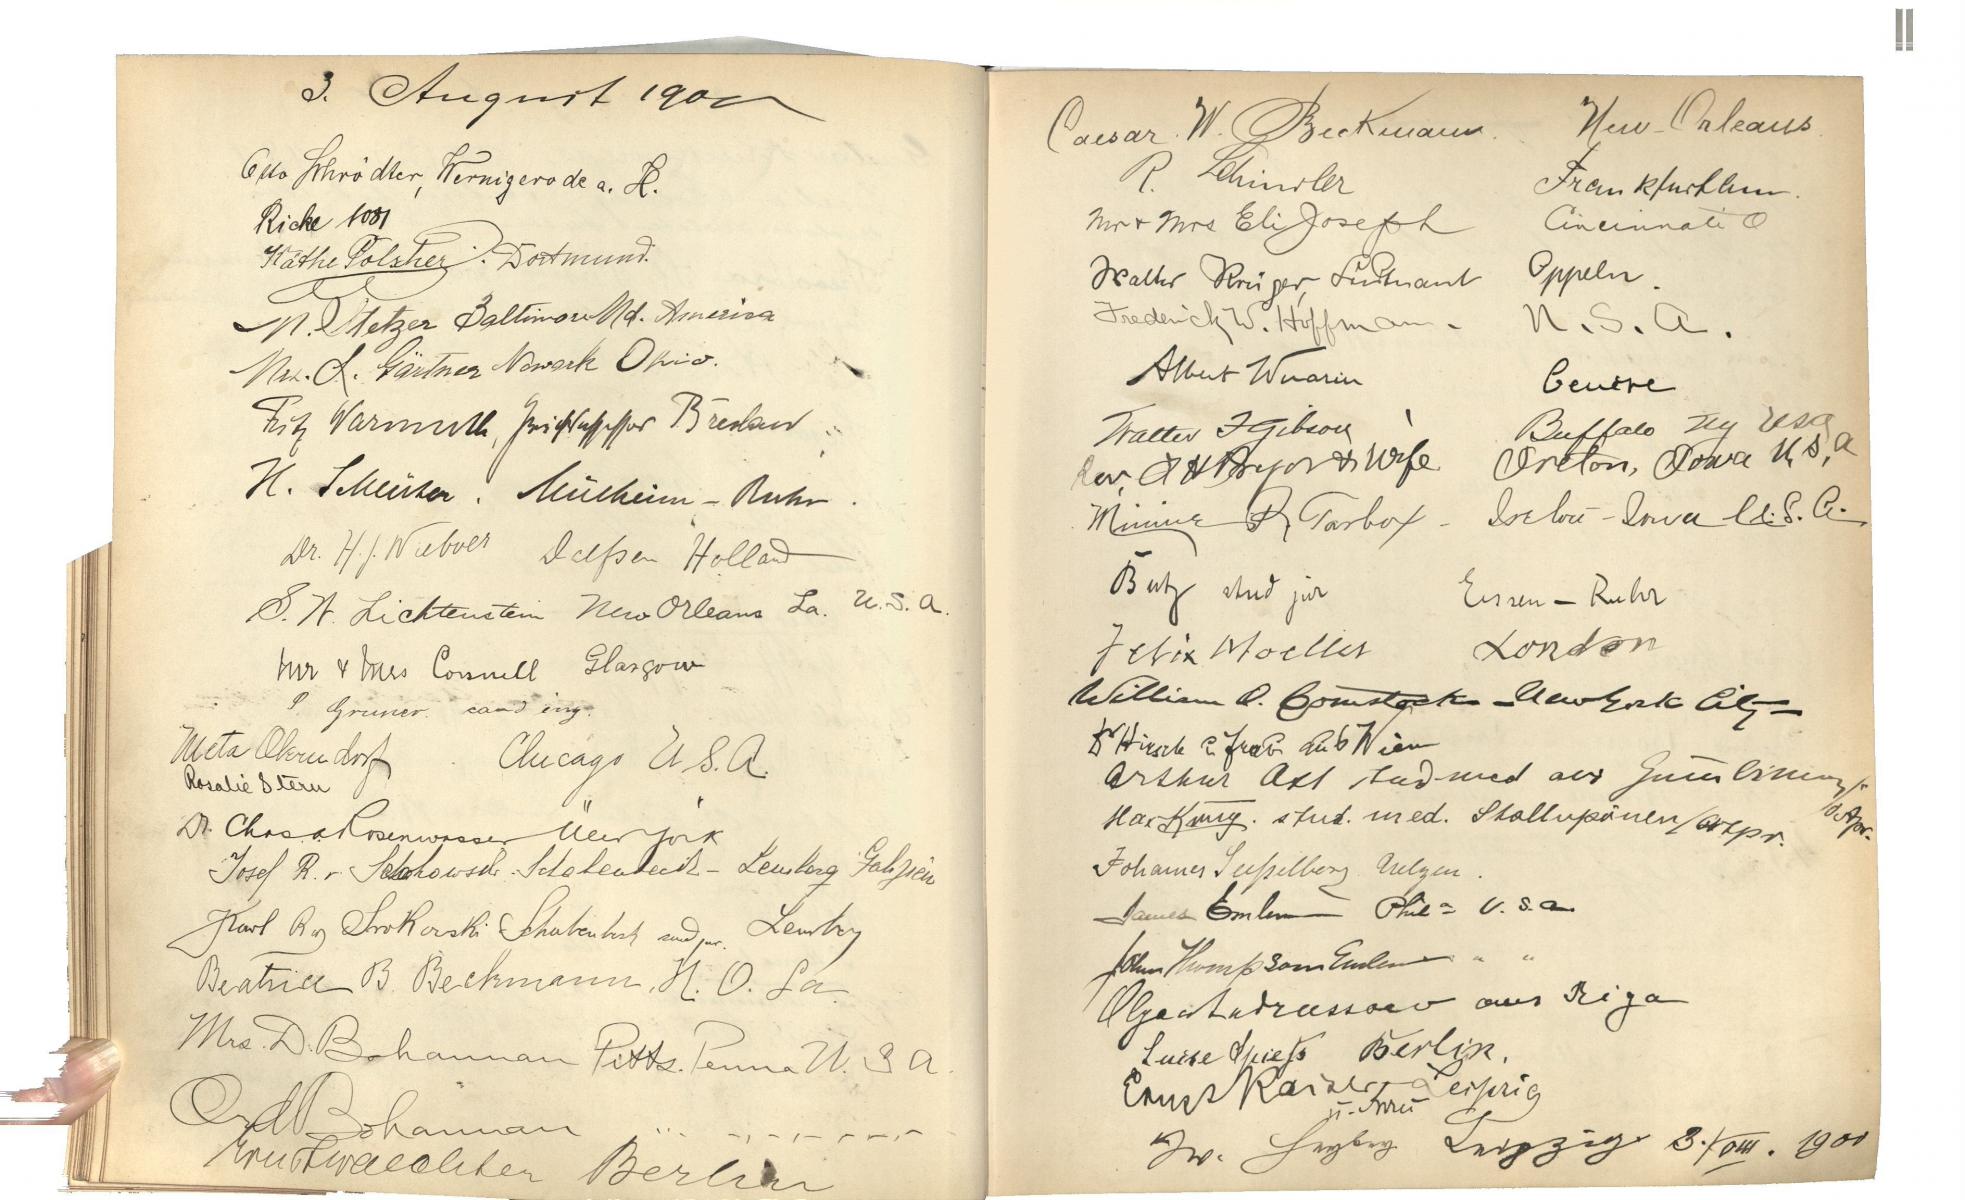 3. August 1900
Otto Schrödter, Wernigerode a. H.
Ricke
Käthe Polsher. Dortmund.
Stetzer Baltimore Md. America
Mrs. L. Gärtner Newark Ohio.
Fritz Warmuth, Breslau
H. Schlüter. Mülheim - Ruhr.
Dr. H. J. Dalfsen Holland
S. W. Lichtenstein New Orleans La. U.S.A.
Mr & Mrs Connell Glasgow
P. Gruner. cand ing.
Meta Oberndorf Chicago U.S.A.
Rosalie Stern
Dr. Chas. A. Rosenwasser New York
Josef R. v. Lemberg Galizien
Karl Lemberg
Beatrice B. Beckmann, N. O. La
Mrs. D. Bohannan Pitts. Penna U. S A.
Bohannan
Berlin
Caesar W. Beckmann. New-Orleans
R. Schindler Frankfurt
Mr & Mrs Eli Joseph Cincinnati O
Walter Krüger, Leutnant Oppeln.
Frederick W. Hoffman - U. S. A.
Albert Wuarin Genève
Walter F Gibson Buffalo NY USA
Rev. & Wife Ireton, Iowa U, S, A
Minnie Tarbox - Ireton - Iowa U.S.A.
Butz stud jur Essen - Ruhr
Felix Moeller London
William O. Comstock - New York City -
Dr Hirsch u Frau aus Wien
Arthur Axt stud med aus Gumbinnen / O. Pr.
Max King. stud. med. Stallupönen / Ostpr.
Johannes Uelzen.
James Emlen Phila U.S.a
John Thompson Emlen " "
Olga aus Riga
Luise Spieß Berlin.
Ernst Kaiser Leipzig
u. Frau
Leipzig 3./VIII. 1900